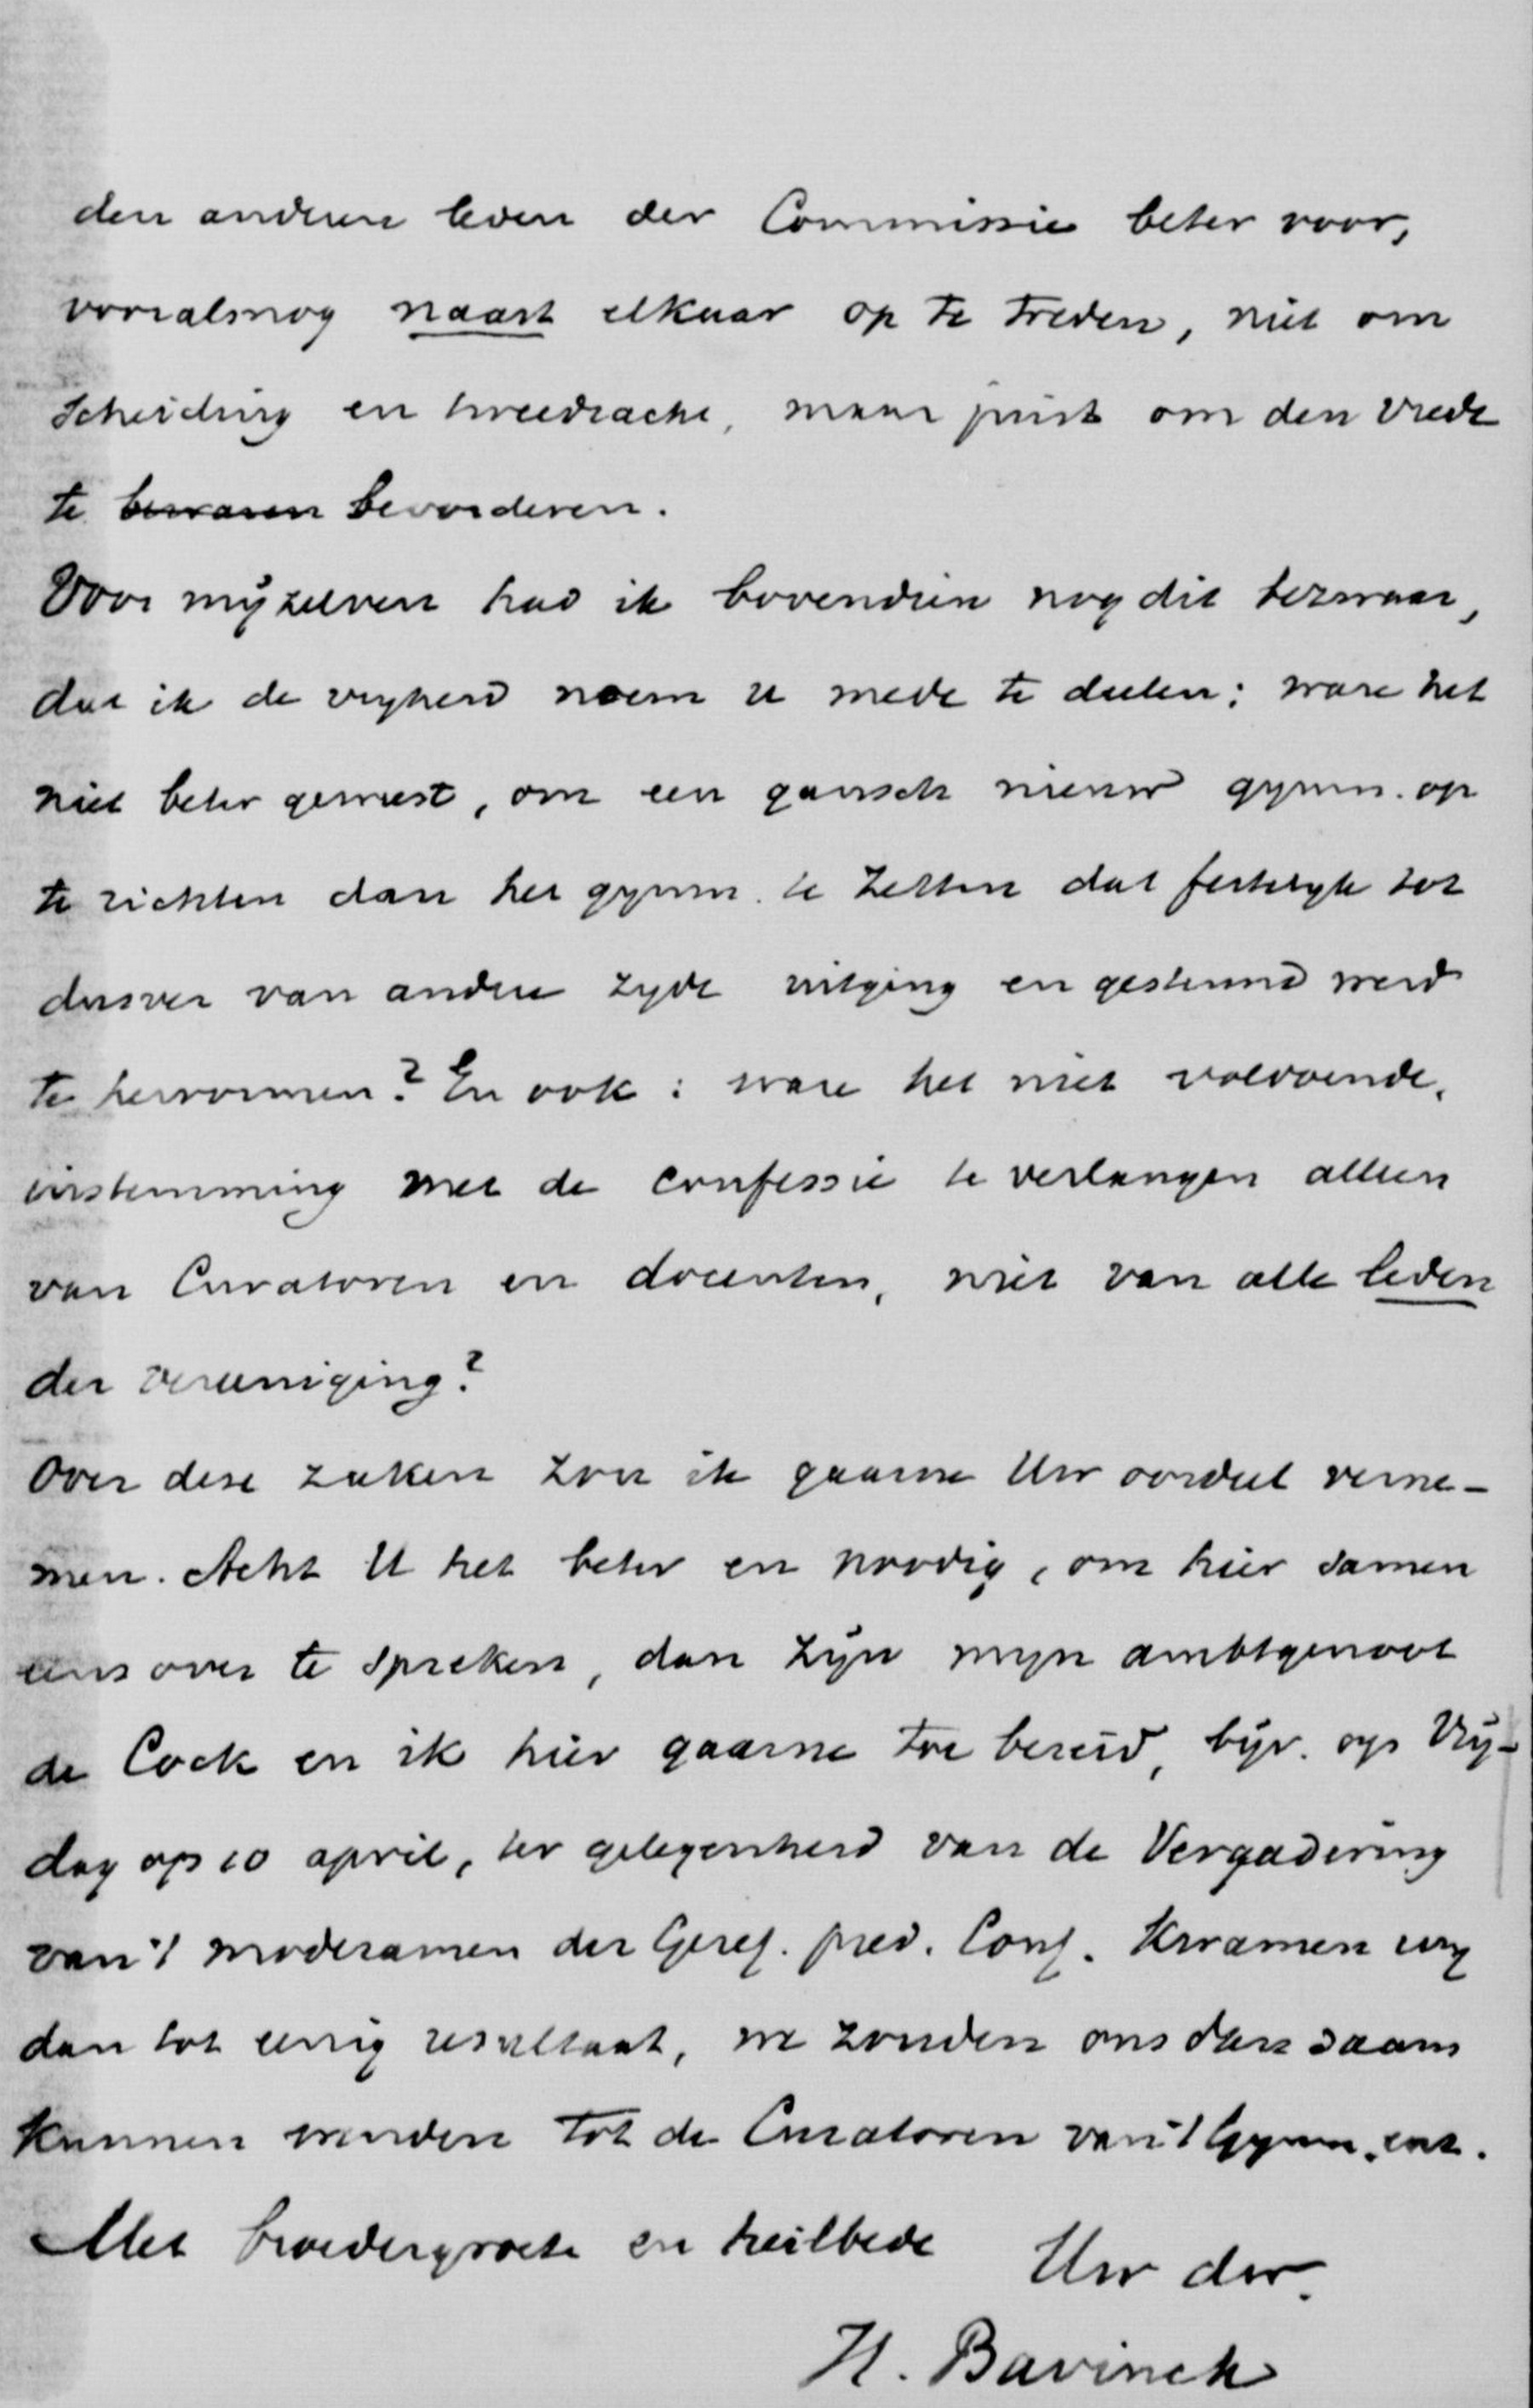 den anderen leden der Commissie beter voor,
vooralsnog naast elkaar op te treden, niet om
scheiding en tweedracht, maar juist om den vrede
te bewaren bevorderen.
Voor mijzelven had ik bovendien nog dit bezwaar,
dat ik de vrijheid neem u mede te deelen: ware het
niet beter geweest, om een gansch nieuw gymn. op
te richten dan het gymn. te Zetten dat feitelijk tot
dusver van andere zyde uitging en gesteund werd
te hervormen? En ook: ware het niet voldoende,
instemming met de confessie te verlangen alleen
van Curatoren en docenten, niet van alle leden
der vereeniging?
Over deze zaken zou ik gaarne Uw oordeel verne-
men. Acht U het beter en noodig, om hier samen
eens over te spreken, dan zijn mijn ambtgenoot
de Cock en ik hier gaarne toe bereid, bijv. op Vrij-
dag op 10 april, ter gelegenheid van de Vergadering
van 't moderamen der Geref. pred. Conf. Kwamen wij
dan tot eenig resultaat, we zouden ons dan saam
kunnen wenden tot de Curatoren van 't Gymn. enz.
Met broedergroete en heilbede Uw dw.
H. Bavinck